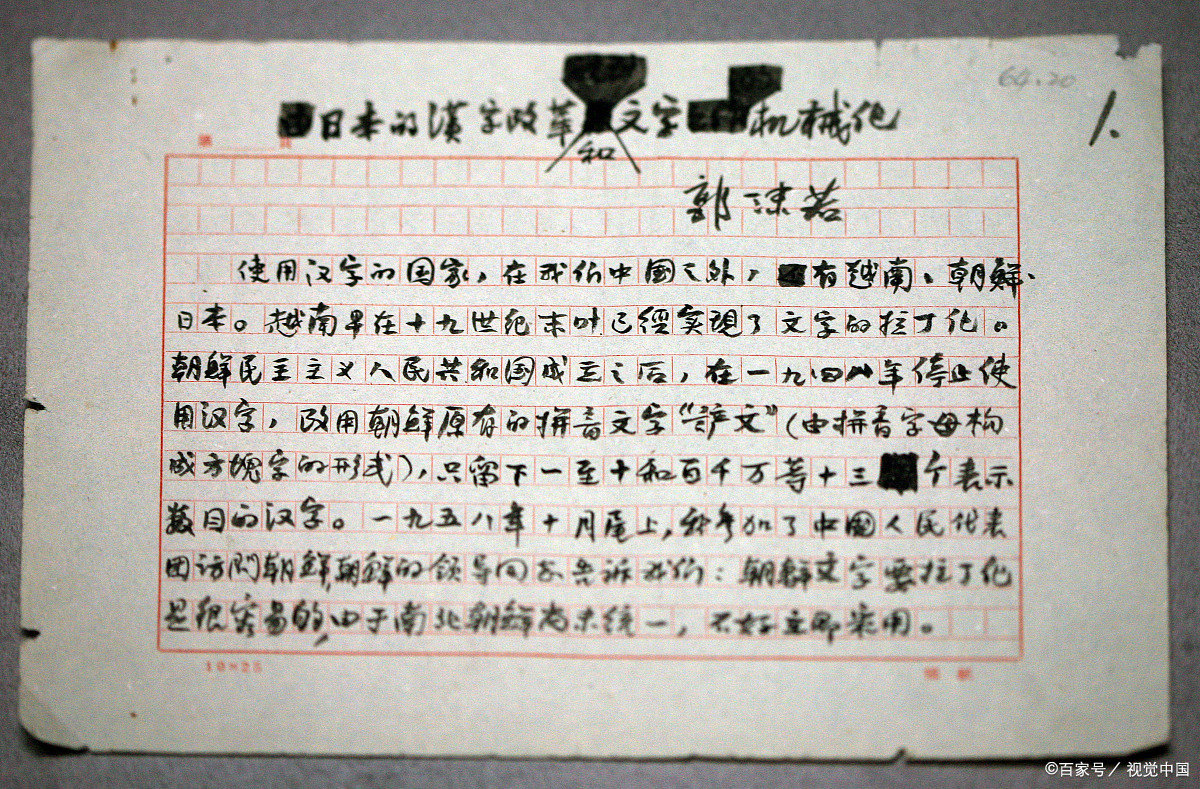 64.20
1.
日本的漢字改革和文字机械化
第 頁
郭沫若
使用汉字的国家,在我们中國之外,有越南、朝鮮、
日本。越南早在十九世纪末叶已經实現了文字的拉丁化。
朝鮮民主主义人民共和国成立之后,在一九四八年停止使
用汉字,改用朝鮮原有的拼音文字“諺文”(由拼音字母构
成方塊字的形式),只留下一至十和百千万等十三个表示
数目的汉字。一九五八年十月尾上,我参加了中國人民代表
团访问朝鮮,朝鮮的领导同志告诉我们:朝鮮文字要拉丁化
是很容易的,由于南北朝鮮尚未统一,不好立即采用。
10×25
©百家号/视觉中国